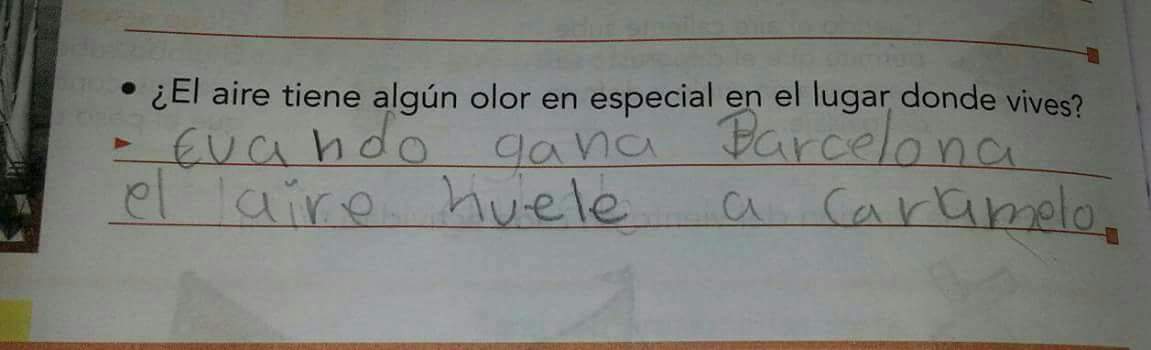 • ¿El aire tiene algún olor en especial en el lugar donde vives?
Cuando gana Barcelona
el aire huele a caramelo